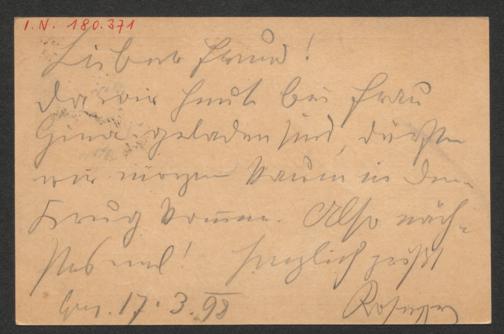 I.N. 180.371
Lieber Freund!
Da wir heute bei Frau
Gina geladen sind, dürften
wir morgen kaum in den
Krug kommen. Also näch-
stes mal! Herzlich grüßt
Graz. 17.3.98 Rosegger